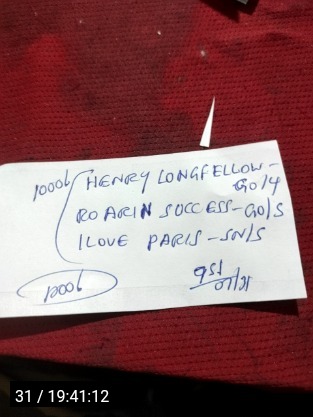 1000/- HENRY LONGFELLOW -
GO/4
ROARIN SUCCESS - GO/S
I LOVE PARIS - SN/S
1000/-
31 / 19:41:12